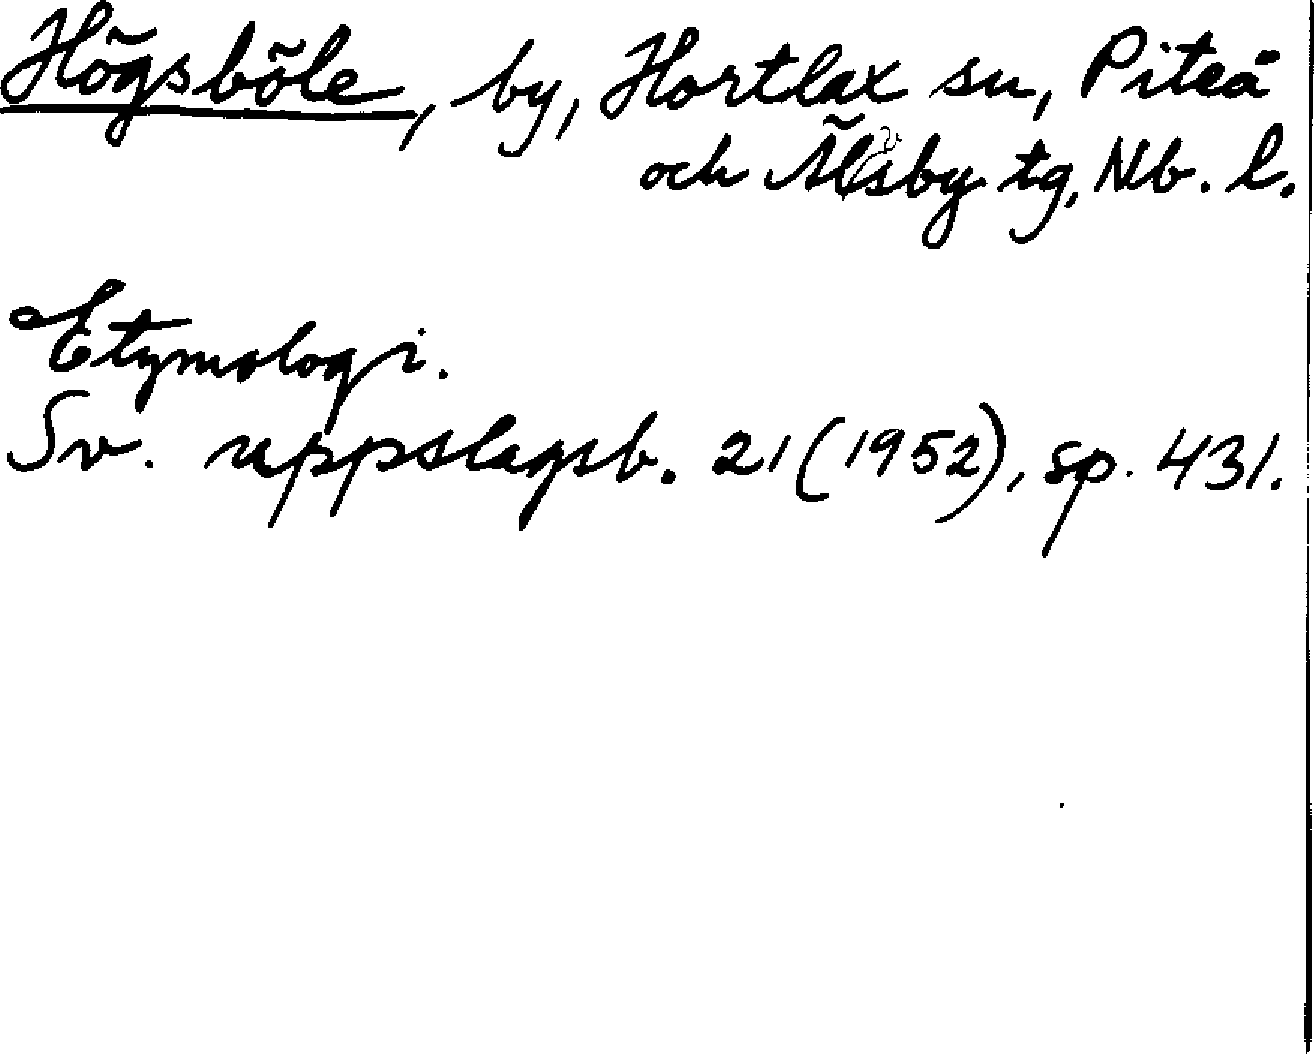 Högsböle, by, Hortlax sn, Piteå
och Älvsby tg, Nb. l.
Etymologi.
Sv. uppslagsb. 21 (1952), sp. 431.